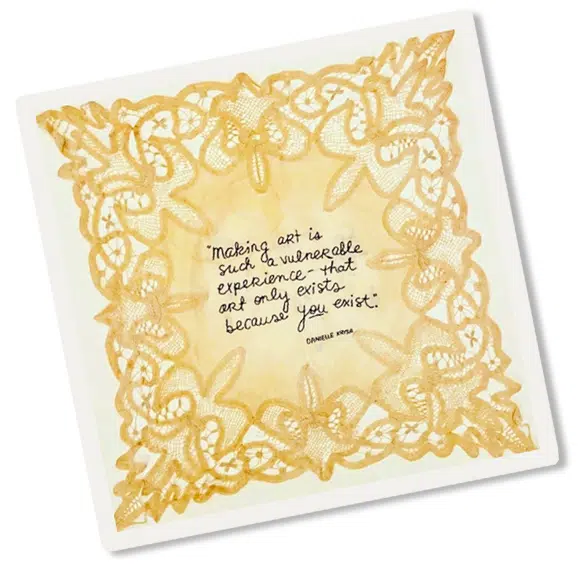 "Making art is
such a vulnerable
experience - that
art only exists
because you exist."
DANIELLE KRYSA